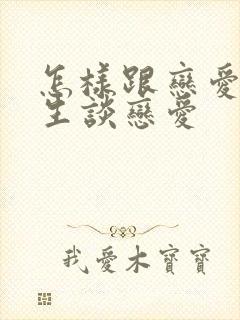 怎樣跟戀愛
生談戀愛
我愛木寶寶